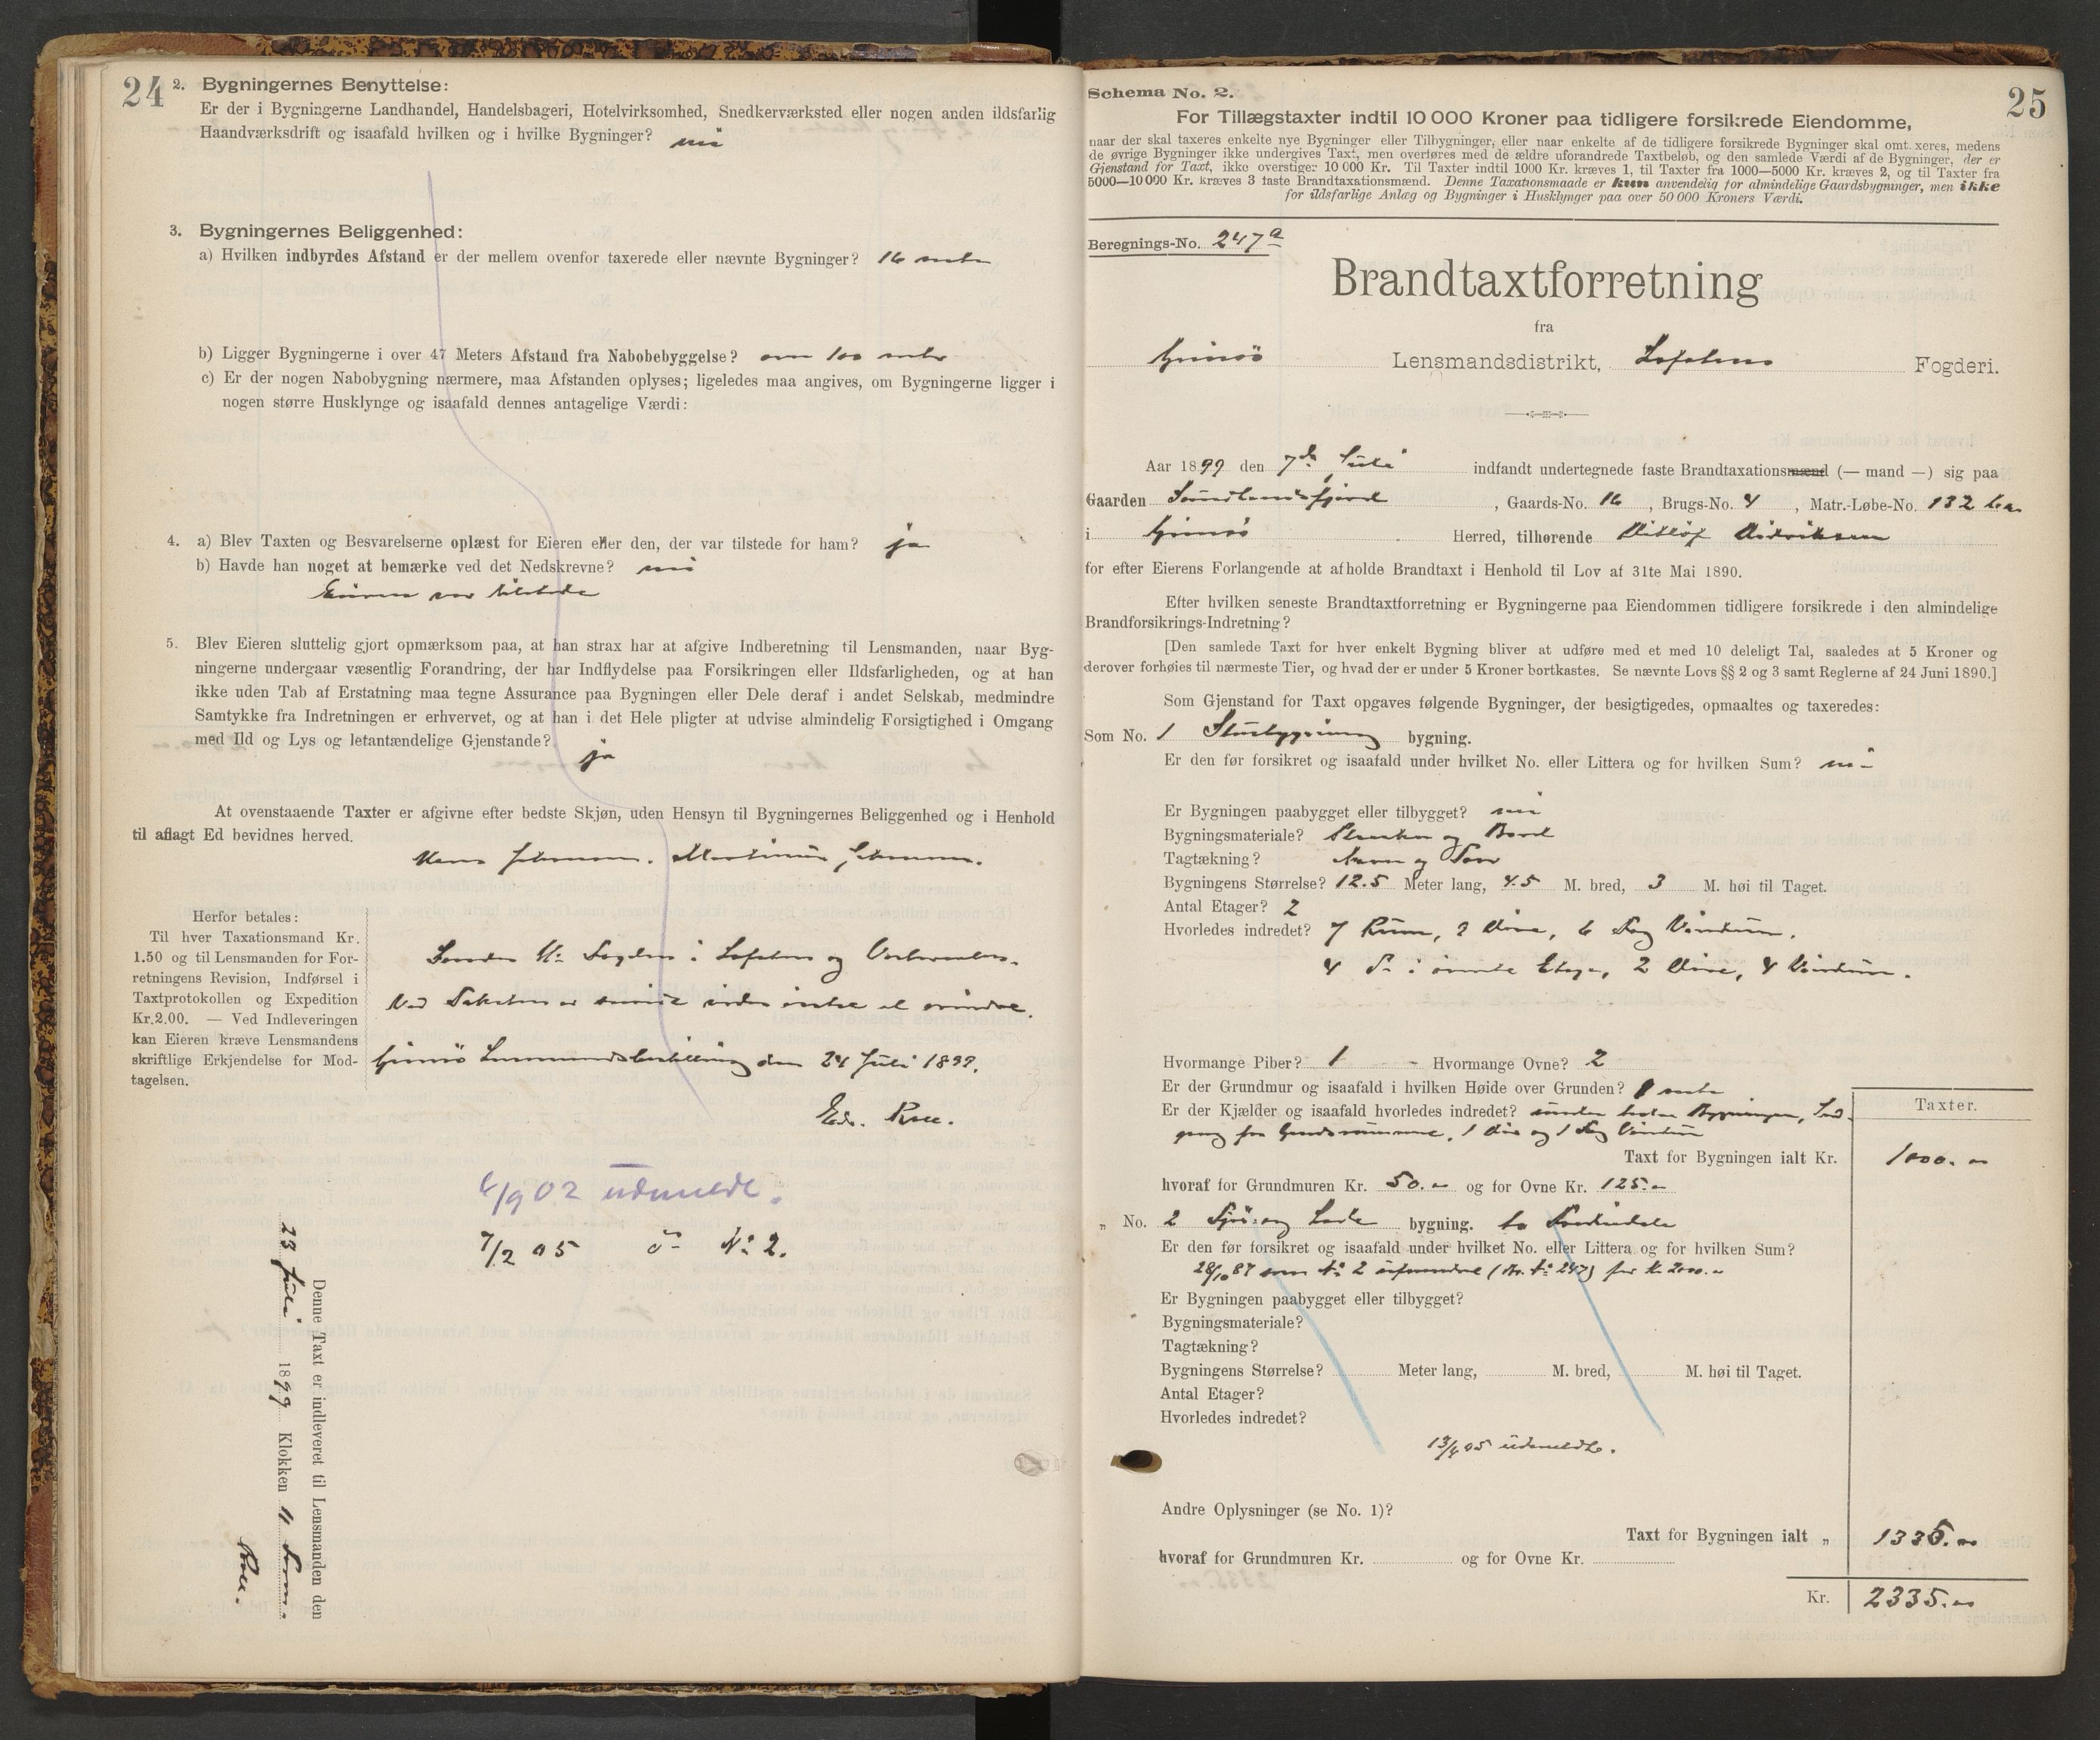 24
2. Bygningernes Benyttelse:
Er der i Bygningerne Landhandel, Handelsbageri, Hotelvirksomhed, Snedkerværksted eller nogen anden ildsfarlig
Haandværksdrift og isaafald hvilken og i hvilke Bygninger? nei
3. Bygningernes Beliggenhed:
a) Hvilken indbyrdes Afstand er der mellem ovenfor taxerede eller nævnte Bygninger? 16 meter
b) Ligger Bygningerne i over 47 Meters Afstand fra Nabobebyggelse? om 100 meter
c) Er der nogen Nabobygning nærmere, maa Afstanden oplyses; ligeledes maa angives, om Bygningerne ligger i
nogen større Husklynge og isaafald dennes antagelige Værdi:
4. a) Blev Taxten og Besvarelserne oplæst for Eieren eller den, der var tilstede for ham? ja
b) Havde han noget at bemærke ved det Nedskrevne? nei
Eieren var tilstede
5. Blev Eieren sluttelig gjort opmærksom paa, at han strax har at afgive Indberetning til Lensmanden, naar Byg-
ningerne undergaar væsentlig Forandring, der har Indflydelse paa Forsikringen eller Ildsfarligheden, og at han
ikke uden Tab af Erstatning maa tegne Assurance paa Bygningen eller Dele deraf i andet Selskab, medmindre
Samtykke fra Indretningen er erhvervet, og at han i det Hele pligter at udvise almindelig Forsigtighed i Omgang
med Ild og Lys og letantændelige Gjenstande?
ja
At ovenstaaende Taxter er afgivne efter bedste Skjøn, uden Hensyn til Bygningernes Beliggenhed og i Henhold
til aflagt Ed bevidnes herved.
Hans Johnsen. Martinus Johnsen.
Herfor betales:
Til hver Taxationsmand Kr.
1.50 og til Lensmanden for For-
retningens Revision, Indførsel i
Taxtprotokollen og Expedition
Kr. 2.00. — Ved Indleveringen
kan Eieren kræve Lensmandens
skriftlige Erkjendelse for Mod-
tagelsen.
Sendes Hr. Fogden i Lofoten og Vesteraalen.
Ved Taksten er intet at erindre.
Gimsø Lensmandsbestilling den 24 Juli 1899.
Edv. Rree.
6/9 02 udmeldt.
7/2 05 do No 2.
Denne Taxt er indleveret til Lensmanden den
23 Juli 1899 Klokken 11 Form.
25
Schema No. 2.
For Tillægstaxter indtil 10 000 Kroner paa tidligere forsikrede Eiendomme,
naar der skal taxeres enkelte nye Bygninger eller Tilbygninger, eller naar enkelte af de tidligere forsikrede Bygninger skal omt.xeres, medens
de øvrige Bygninger ikke undergives Taxt, men overføres med de ældre uforandrede Taxtbeløb, og den samlede Værdi af de Bygninger, der er
Gjenstand for Taxt, ikke overstiger 10 000 Kr. Til Taxter indtil 1000 Kr. kræves 1, til Taxter fra 1000—5000 Kr. kræves 2, og til Taxter fra
5000—10 000 Kr. kræves 3 faste Brandtaxationsmænd. Denne Taxationsmaade er kun anvendelig for almindelige Gaardsbygninger, men ikke
for ildsfarlige Anlæg og Bygninger i Husklynger paa over 50 000 Kroners Værdi.
Beregnings-No. 247a
Brandtaxtforretning
fra
Gimsø Lensmandsdistrikt, Lofotens Fogderi.
Aar 1899 den 7de Juli indfandt undertegnede faste Brandtaxationsmænd (— mand —) sig paa
Gaarden Sundlandsfjord, Gaards-No. 16, Brugs-No. 4, Matr.-Løbe-No. 132
i Gimsø Herred, tilhørende Ditlef Didriksen
for efter Eierens Forlangende at afholde Brandtaxt i Henhold til Lov af 31te Mai 1890.
Efter hvilken seneste Brandtaxtforretning er Bygningerne paa Eiendommen tidligere forsikrede i den almindelige
Brandforsikrings-Indretning?
[Den samlede Taxt for hver enkelt Bygning bliver at udføre med et med 10 deleligt Tal, saaledes at 5 Kroner og
derover forhøies til nærmeste Tier, og hvad der er under 5 Kroner bortkastes. Se nævnte Lovs §§ 2 og 3 samt Reglerne af 24 Juni 1890.]
Som Gjenstand for Taxt opgaves følgende Bygninger, der besigtigedes, opmaaltes og taxeredes:
Som No. 1 Stuebygning bygning.
Er den før forsikret og isaafald under hvilket No. eller Littera og for hvilken Sum? nei
Er Bygningen paabygget eller tilbygget? nei
Bygningsmateriale? Planker og Bord
Tagtækning? Næver og Torv
Bygningens Størrelse? 12.5 Meter lang, 4.5 M. bred, 3 M. høi til Taget.
Antal Etager? 2
Hvorledes indredet? 4 Rum, 9 Døre, 6 Fag Vinduer.
4 Do i anden Etage, 2 Døre, 4 Vinduer.
Hvormange Piber? 1 - Hvormange Ovne? 2
Er der Grundmur og isaafald i hvilken Høide over Grunden? 1 meter
Er der Kjælder og isaafald hvorledes indredet? under hele Bygningen, Ind-
gang fra Grundmuren, 1 Dør og 1 Fag Vindue
Taxter.
Taxt for Bygningen ialt Kr. 1000.00
hvoraf for Grundmuren Kr. 50.00 og for Ovne Kr. 125.00
„ No. 2 Fjøs og Lade bygning.
Er den før forsikret og isaafald under hvilket No. eller Littera og for hvilken Sum?
28/10 87 som No 2 (Br. No 247) for Kr 2000.00
Er Bygningen paabygget eller tilbygget?
Bygningsmateriale?
Tagtækning?
Bygningens Størrelse? Meter lang, M. bred, M. høi til Taget.
Antal Etager?
Hvorledes indredet?
13/6 05 udmeldt.
Andre Oplysninger (se No. 1)?
Taxt for Bygningen ialt „ 1335.00
hvoraf for Grundmuren Kr. og for Ovne Kr.
Kr. 2335.00